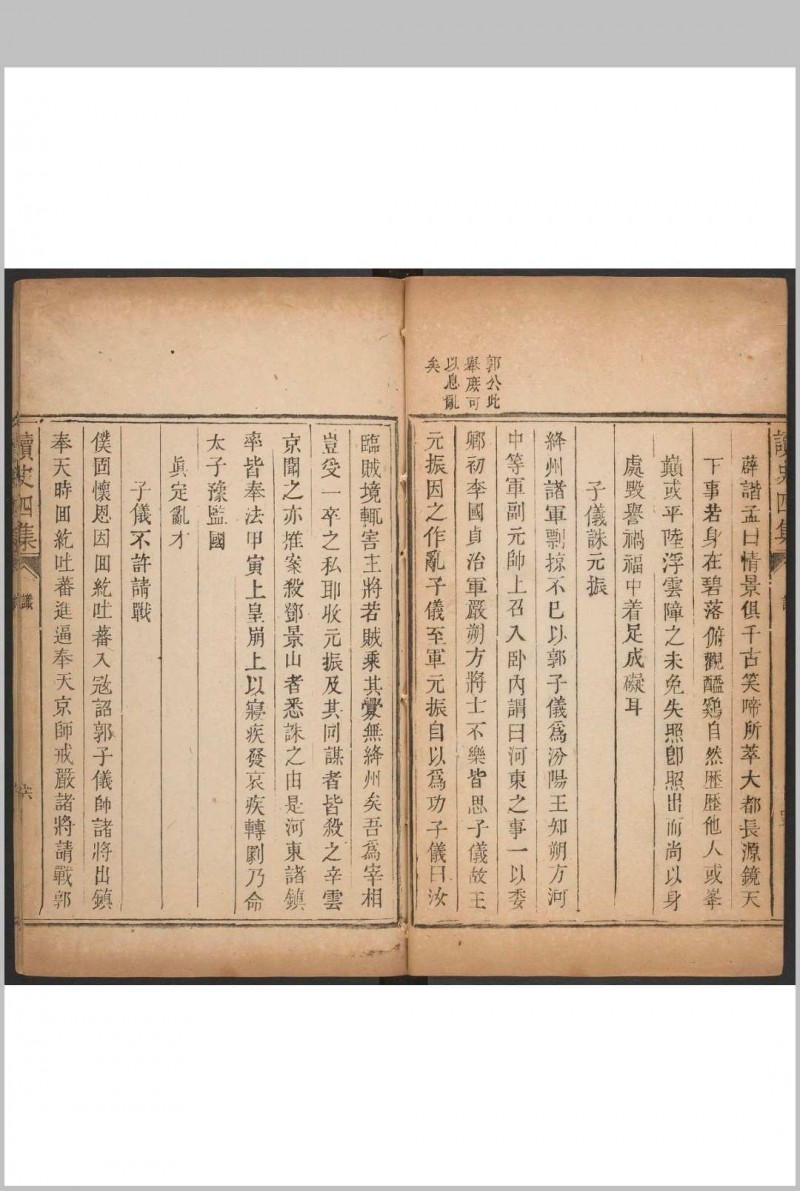 郭公此
舉庶可
以息亂
矣
薜諧孟曰情景俱千古笑啼所萃大都長源鏡天
下事若身在碧落俯觀醯鷄自然歷歷他人或峯
巔或平陸浮雲障之未免失照卽照出而尚以身
處毀譽禍福中着足成礙耳
子儀誅元振
絳州諸軍剽掠不巳以郭子儀爲汾陽王知朔方河
中等軍副元帥上召入卧內謂曰河東之事一以委
卿初李國貞治軍嚴朔方將士不樂皆思子儀故王
元振因之作亂子儀至軍元振自以爲功子儀曰汝
臨賊境輒害主將若賊乘其釁無絳州矣吾爲宰相
豈受一卒之私耶收元振及其同謀者皆殺之辛雲
京聞之亦推案殺鄧景山者悉誅之由是河東諸鎮
率皆奉法甲寅上皇崩上以寢疾發哀疾轉劇乃命
太子豫監國
眞定亂才
子儀不許請戰
僕固懷恩因囬紇吐蕃入冦詔郭子儀帥諸將出鎮
奉天時囬紇吐蕃進逼奉天京師戒嚴諸將請戰郭
讀史四集
識
六